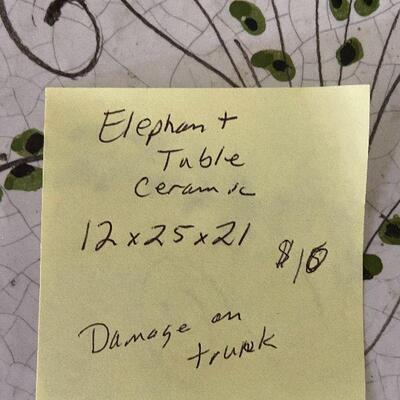 Elephant
Table
Ceramic
12x25x21
$10
Damage on
trunk